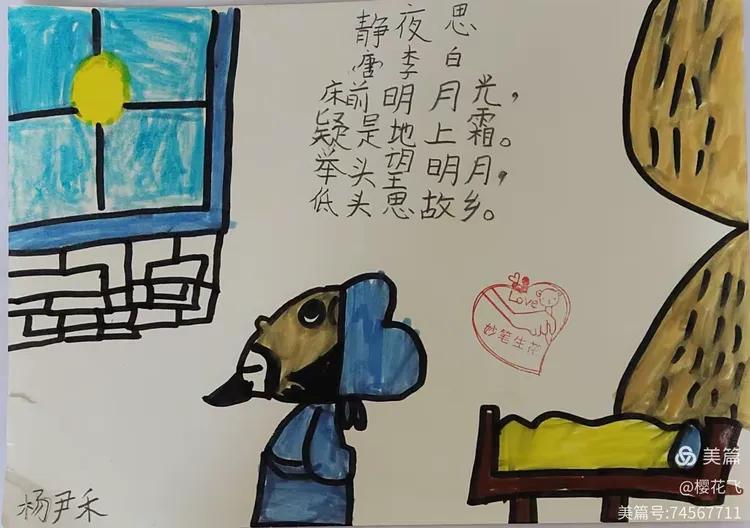 静夜思
唐 李白
床前明月光，
疑是地上霜。
举头望明月，
低头思故乡。
Love
妙笔生花
杨尹禾
美篇
@樱花飞
美篇号:74567711